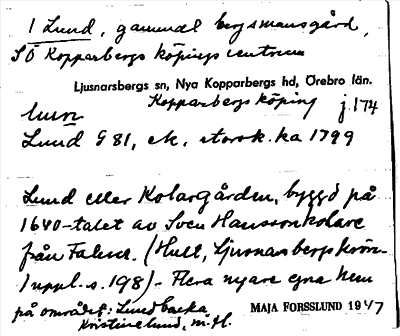 1 Lund, gammal bergsmansgård,
SÖ Kopparbergs köpings centrum
Ljusnarsbergs sn, Nya Kopparbergs hd, Örebro län.
Kopparbergs köping j. 174
Lund G 81, ek. storsk. ka 1799
Lund eller Kolargården, byggd på
1640-talet av Sven Hansson kolare
från Falun. (Hult, Ljusnarsbergs krön.
1 uppl. s. 198). - Flera nyare egna hem
på området: Lundbacka
Kristinelund, m. fl.
MAJA FORSSLUND 1947